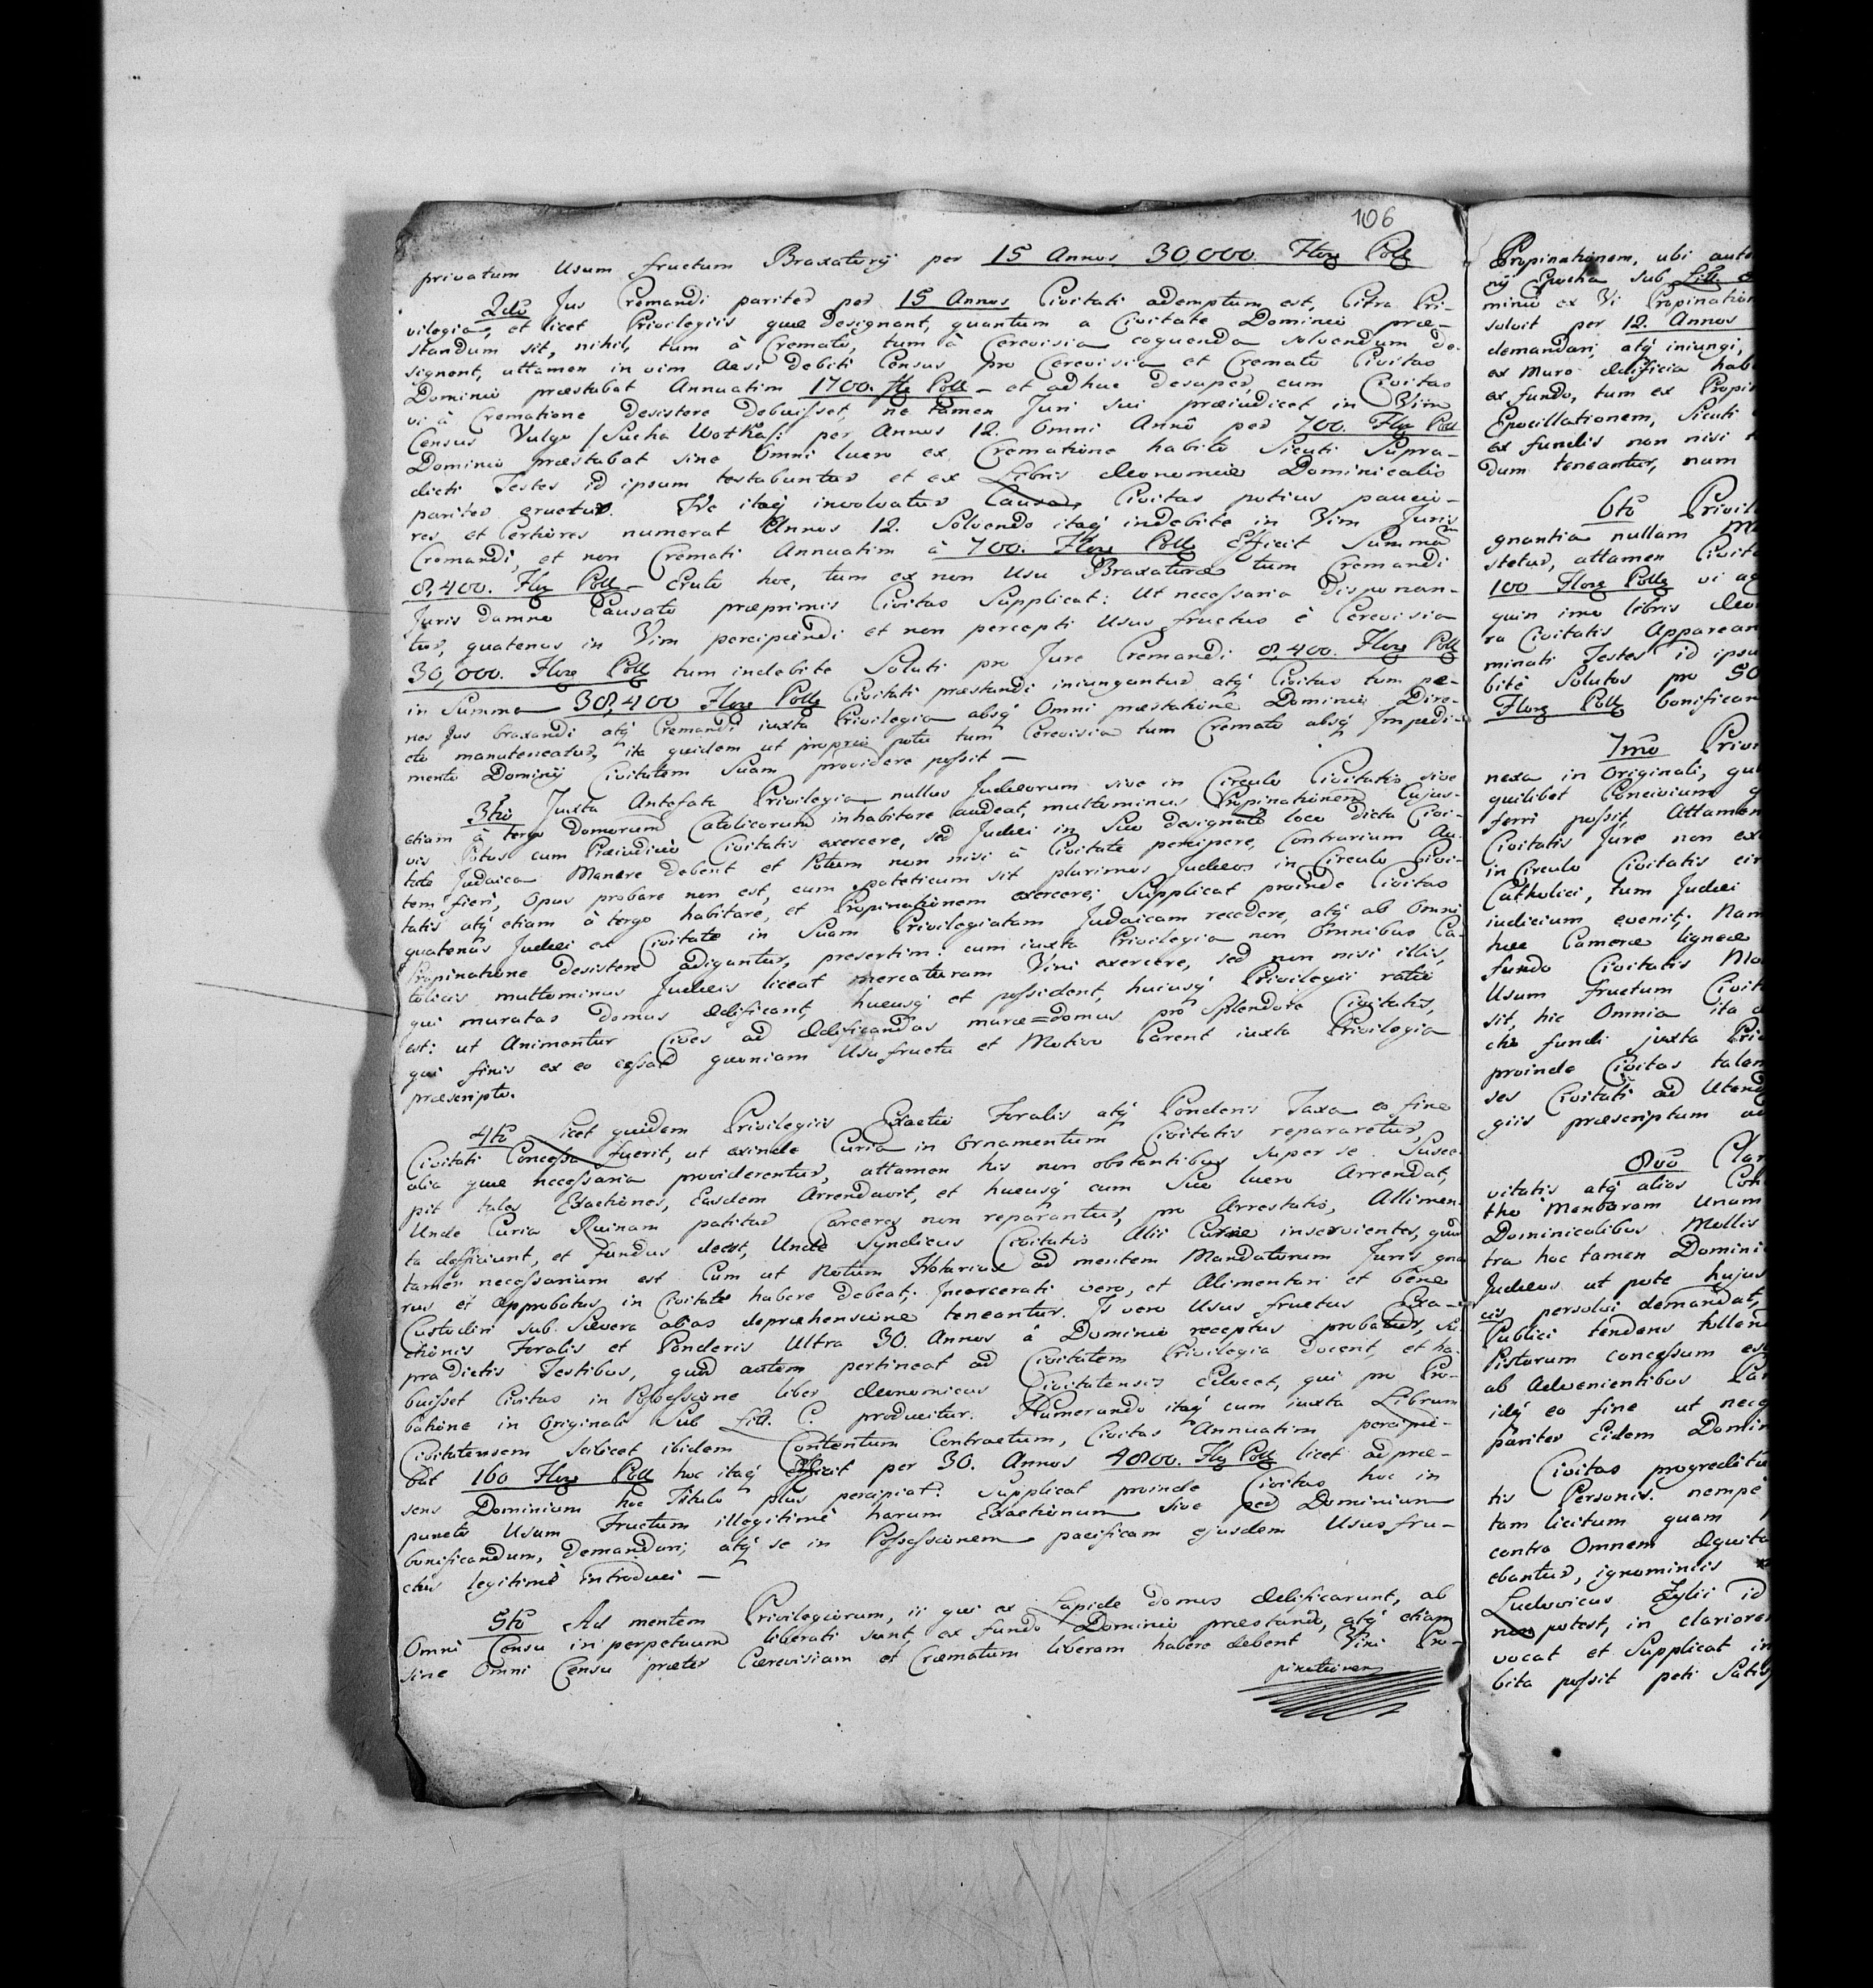 106
privatum Usum fructum Braxatorij per 15 Annos 30,000 Flor Poll
2do Jus Cremandi pariter per 15 Annos Civitati ademptum est, Citra Pri-
vilegia, et licet Privilegiis quæ designant, quantum a Civitate Dominio præ-
standum sit, nihil, tum à Cremato, tum à Cerevisia coquenda solvendum de-
signent, attamen in vim quasi debiti Census pro Cerevisia et Cremato Civitas
Dominio præstabat Annuatim 1700. flr Poll – et adhuc desuper, cum Civitas
vi à Crematione desistere debuisset, ne tamen Juri sui præiudicet in Vim
Census Vulgo /Sucha Wotka/: per Annos 12. Omni Annô per 700. Flor Poll
Dominio præstabat sine Omni lucro ex Crematione habito Sicuti Supra-
dicti Testes id ipsum testabuntur et ex Libris Æconomiæ Dominicalis
pariter eruetur. Ne itaq involvatur Causa, Civitas potius paucio-
res et Certiores numerat Annos 12. Solvendo itaq indebite in Vim Juris
Cremandi, et non Cremati Annuatim à 700. Flor Poll Efficit Summam
8,400. Flor Poll – Eruto hoc, tum ex non Usu Braxaturæ tum Cremandi
Juris damno Causato præprimis Civitas Supplicat: Ut necessaria disponan-
tur, quatenus in Vim percipiendi et non percepti Usus fructus è Cerevisia
30,000. Flor Poll tum indebite Soluti pro Jure Cremandi 8,400. Flor Poll
in Summa 38,400 Flor Poll Civitati præstandi iniungantur atq Civitas tum pæ-
nes Jus braxandi atq Cremandi iuxta Privilegia absq Omni præstatione Dominio Dire-
cte manuteneatur, ita quidem ut proprio potu tum Cerevisia tum Cremato absq Impedi-
mento Dominij Civitatem Suam providere possit –
3tio Juxta Antefata Privilegia nullus Judæorum sive in Circulo Civitatis sive
etiam à tergo domorum Catolicorum inhabitare audeat, multominus Propinationem Cujus-
vis Potus cum Præiudicio Civitatis exercere, sed Judæi in Suo designato loco dicto Civi-
tate Judaica Manere debent et Potum non nisi à Civitate percipere, Contrarium Au-
tem fieri, Opus probare non est, cum pateticum sit plurimos Judæos in Circulo Civi-
tatis atq etiam à tergo habitare, et Propinationem exercere; Supplicat proinde Civitas
quatenus Judæi ex Civitate in Suam Privilegiatam Judaicam recedere, atq ab Omni
Propinatione desistere adigantur, presertim: cum iuxta Privilegia non Omnibus Ca-
tolicis multominus Judæis liceat mercaturam Vini exercere, sed non nisi illis,
qui muratas domus ædificant, hucusq et possident, huiusq Privilegii ratio
est: ut Animentur Cives ad Ædificandas muræ=domus pro Splendore Civitatis,
qui finis ex eo cessat quoniam Usufructu et Motivo Carent iuxta Privilegia
præscripto.
4to licet quidem Privilegiis Exactio Foralis atq Ponderis Taxa eo fine
Civitati Concessa fuerit, ut exinde Curia in Ornamentum Civitatis repararetur,
alia quæ necessaria providerentur, attamen his non obstantibus Super se Susce-
pit tales Exactiones, Easdem Arrendavit, et hucusq cum Suo lucro Arrendat,
Unde Curia Ruinam patitur Carceres non reparantur, pro Arrestatis, Allimen-
ta defficiunt, et fundus deest, Unde Syndicus Civitatis Alii Curiæ inservientes, quod
tamen necessarium est Cum ut Notum Notarius ad mentem Mandatorum Juris gna-
rus et Approbatus, in Civitate habere debeat; Incarcerati vero, et Alimentari et bene
Custodiri sub Severa alias deprehensione teneantur. Is vero Usus fructus Exa-
ctionis Foralis et Ponderis Ultra 30. Annos à Dominio receptus probatur, Su-
pra dictis Testibus, quod autem pertineat ad Civitatem Privilegia docent, et ha-
buisset Civitas in Possessione liber Æconomicus Civitatensis Edocet, qui pro Pro-
batione in Originali Sub Litt. C. producitur. Numerando itaq cum iuxta Librum
Civitatensem scilicet ibidem Contentum Contractum, Civitas Annuatim percipie-
bat 160 Flor Poll hoc itaq efficit per 30. Annos 4800. Flr Poll licet ad præ-
sens Dominium hoc Titulo plus percipiat. Supplicat proinde Civitas hoc in
puncto Usum Fructum illegitime harum Exactionum Sive per Dominium
bonificandum, Demandari; atq se in Possessionem pacificam ejusdem Usus fru-
ctus legitime introduci –
5to Ad mentem Privilegiorum, ii qui ex Lapide domus ædificarunt, ab
Omni Censu in perpetuum liberati sunt ex fundo Dominio præstandi, atq etiam
sine Omni Censu præter Cærevisiam et Cræmatum liberam habere debent Vini Pro-
pinationem
Propinationem, ubi aute
nij Epocha sub Litt.
minio ex Vi Propination
solvit per 12. Annos
demandari, atq iniungi,
ex Muro ædificia hab
ex fundo, tum ex Propin
Epocillationem, Sicuti
ex fundis non nisi
dum teneantur, nam
6to Privil
gnantia nullam
stetur, attamen Civita
100 Flor Poll vi
quin imo libris Æco
ra Civitatis Apparean
minati Testes id ipsu
bitè Solutos pro 50
Flor Poll bonifican
7mo Privi
nexa in Originali, qui
quilibet Concivium
ferri possit, Attamen
Civitatis Jure non
in Circulo Civitatis cir
Catholici, tum Judæi
iudicium evenit; Nam
hæ Cameræ ligneæ
fundo Civitatis
Usum fructum Civit
sit, hic Omnia ita
cti fundi juxta Pri
proinde Civitas talem
ses Civitati ad Utend
giis præscriptum
8vo Clar
vitatis atq alios
Unam
Dominicalibus Mollis
tra hoc tamen Domini
Judæos ut pote hujus
cis persolvi demandat,
Publici tendens
Pistorum concessum
ab Advenientibus
idq eo fine ut nece
pariter Eidem Domin
Civitas progredit
tis Personis. nempe
tam licitum quam
contra Omnem Æquita
ebantur, ignominiis
Ludovicus id
non potest, in clariorem
vocat et Supplicat in
bita possit peti Satis